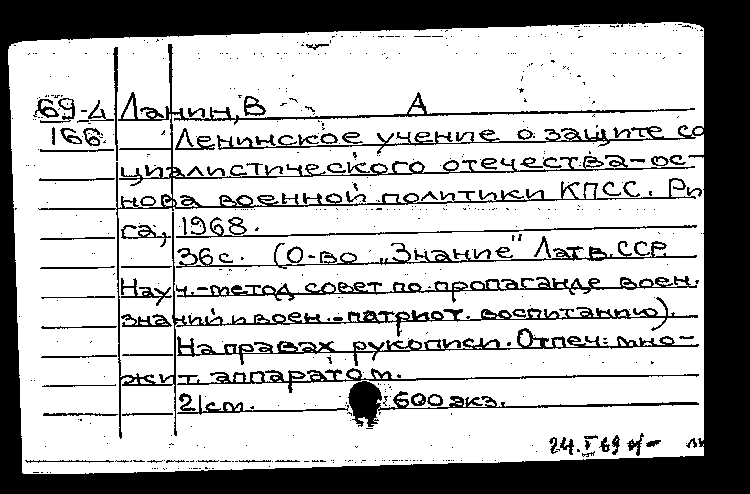 69-4 Ланин, В А
166 Ленинское учение о защите со
циалистического отечества-ос-
нова военной политики КПСС. Ри
га, 1968.
36с. (О-во „Знание" Латв.ССР.
Науч.-метод совет по пропаганде воен.
знаний и воен.-патриот. воспитанию).
На правах рукописи. Отпеч. мно-
жит. аппаратом.
21см. 600 экз.
24.V 69